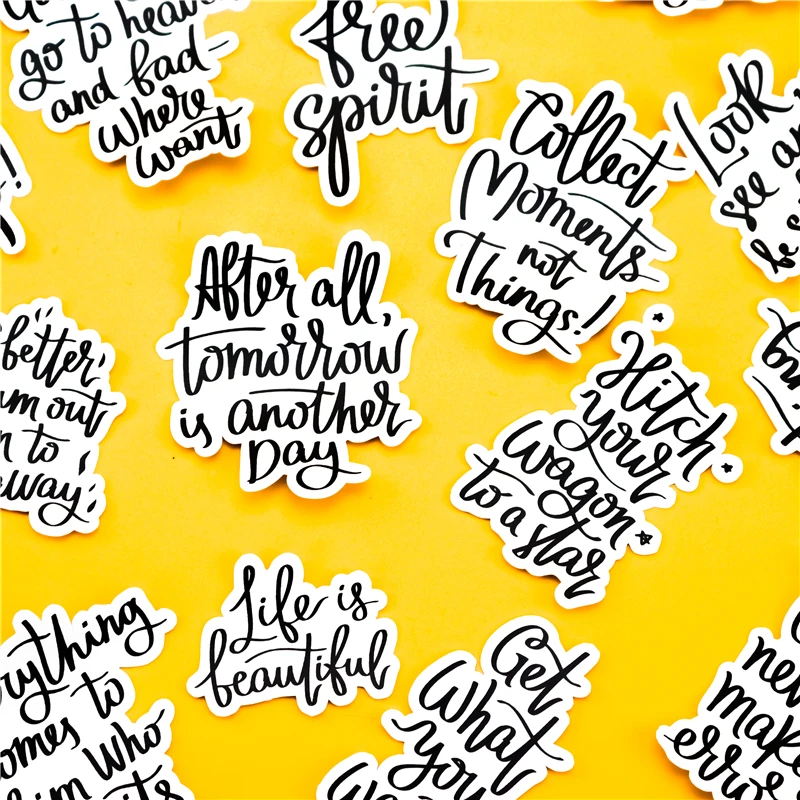 go to heaven
and bad-
where
want
free
spirit
Collect
Moments
not
Things!
Look
see
After all,
tomorrow
is another
Day
better
out
to
way
Hitch
your
wagon
to a star
Life is
beautiful
rything
omes to
him who
its
Get
What
you
make
error